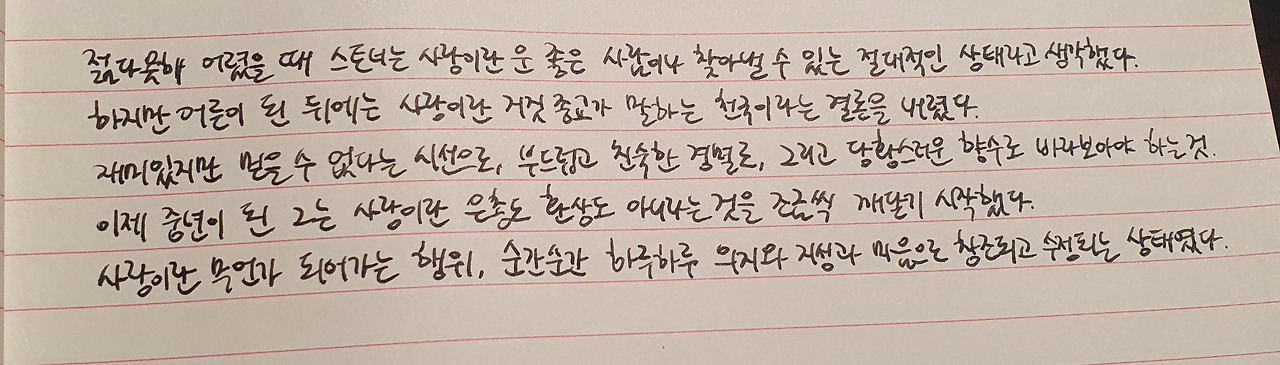 젊다못해 어렸을 때 스토너는 사랑이란 운 좋은 사람이나 찾아낼 수 있는 절대적인 상태라고 생각했다.
하지만 어른이 된 뒤에는 사랑이란 거짓 종교가 말하는 천국이라는 결론을 내렸다.
재미있지만 믿을 수 없다는 시선으로, 부드럽고 친숙한 경멸로, 그리고 당황스러운 향수로 바라보아야 하는것.
이제 중년이 된 그는 사랑이란 은총도 환상도 아니라는것을 조금씩 깨닫기 시작했다.
사랑이란 무언가 되어가는 행위, 순간순간 하루하루 의지와 지성과 마음으로 창조되고 수정되는 상태였다.